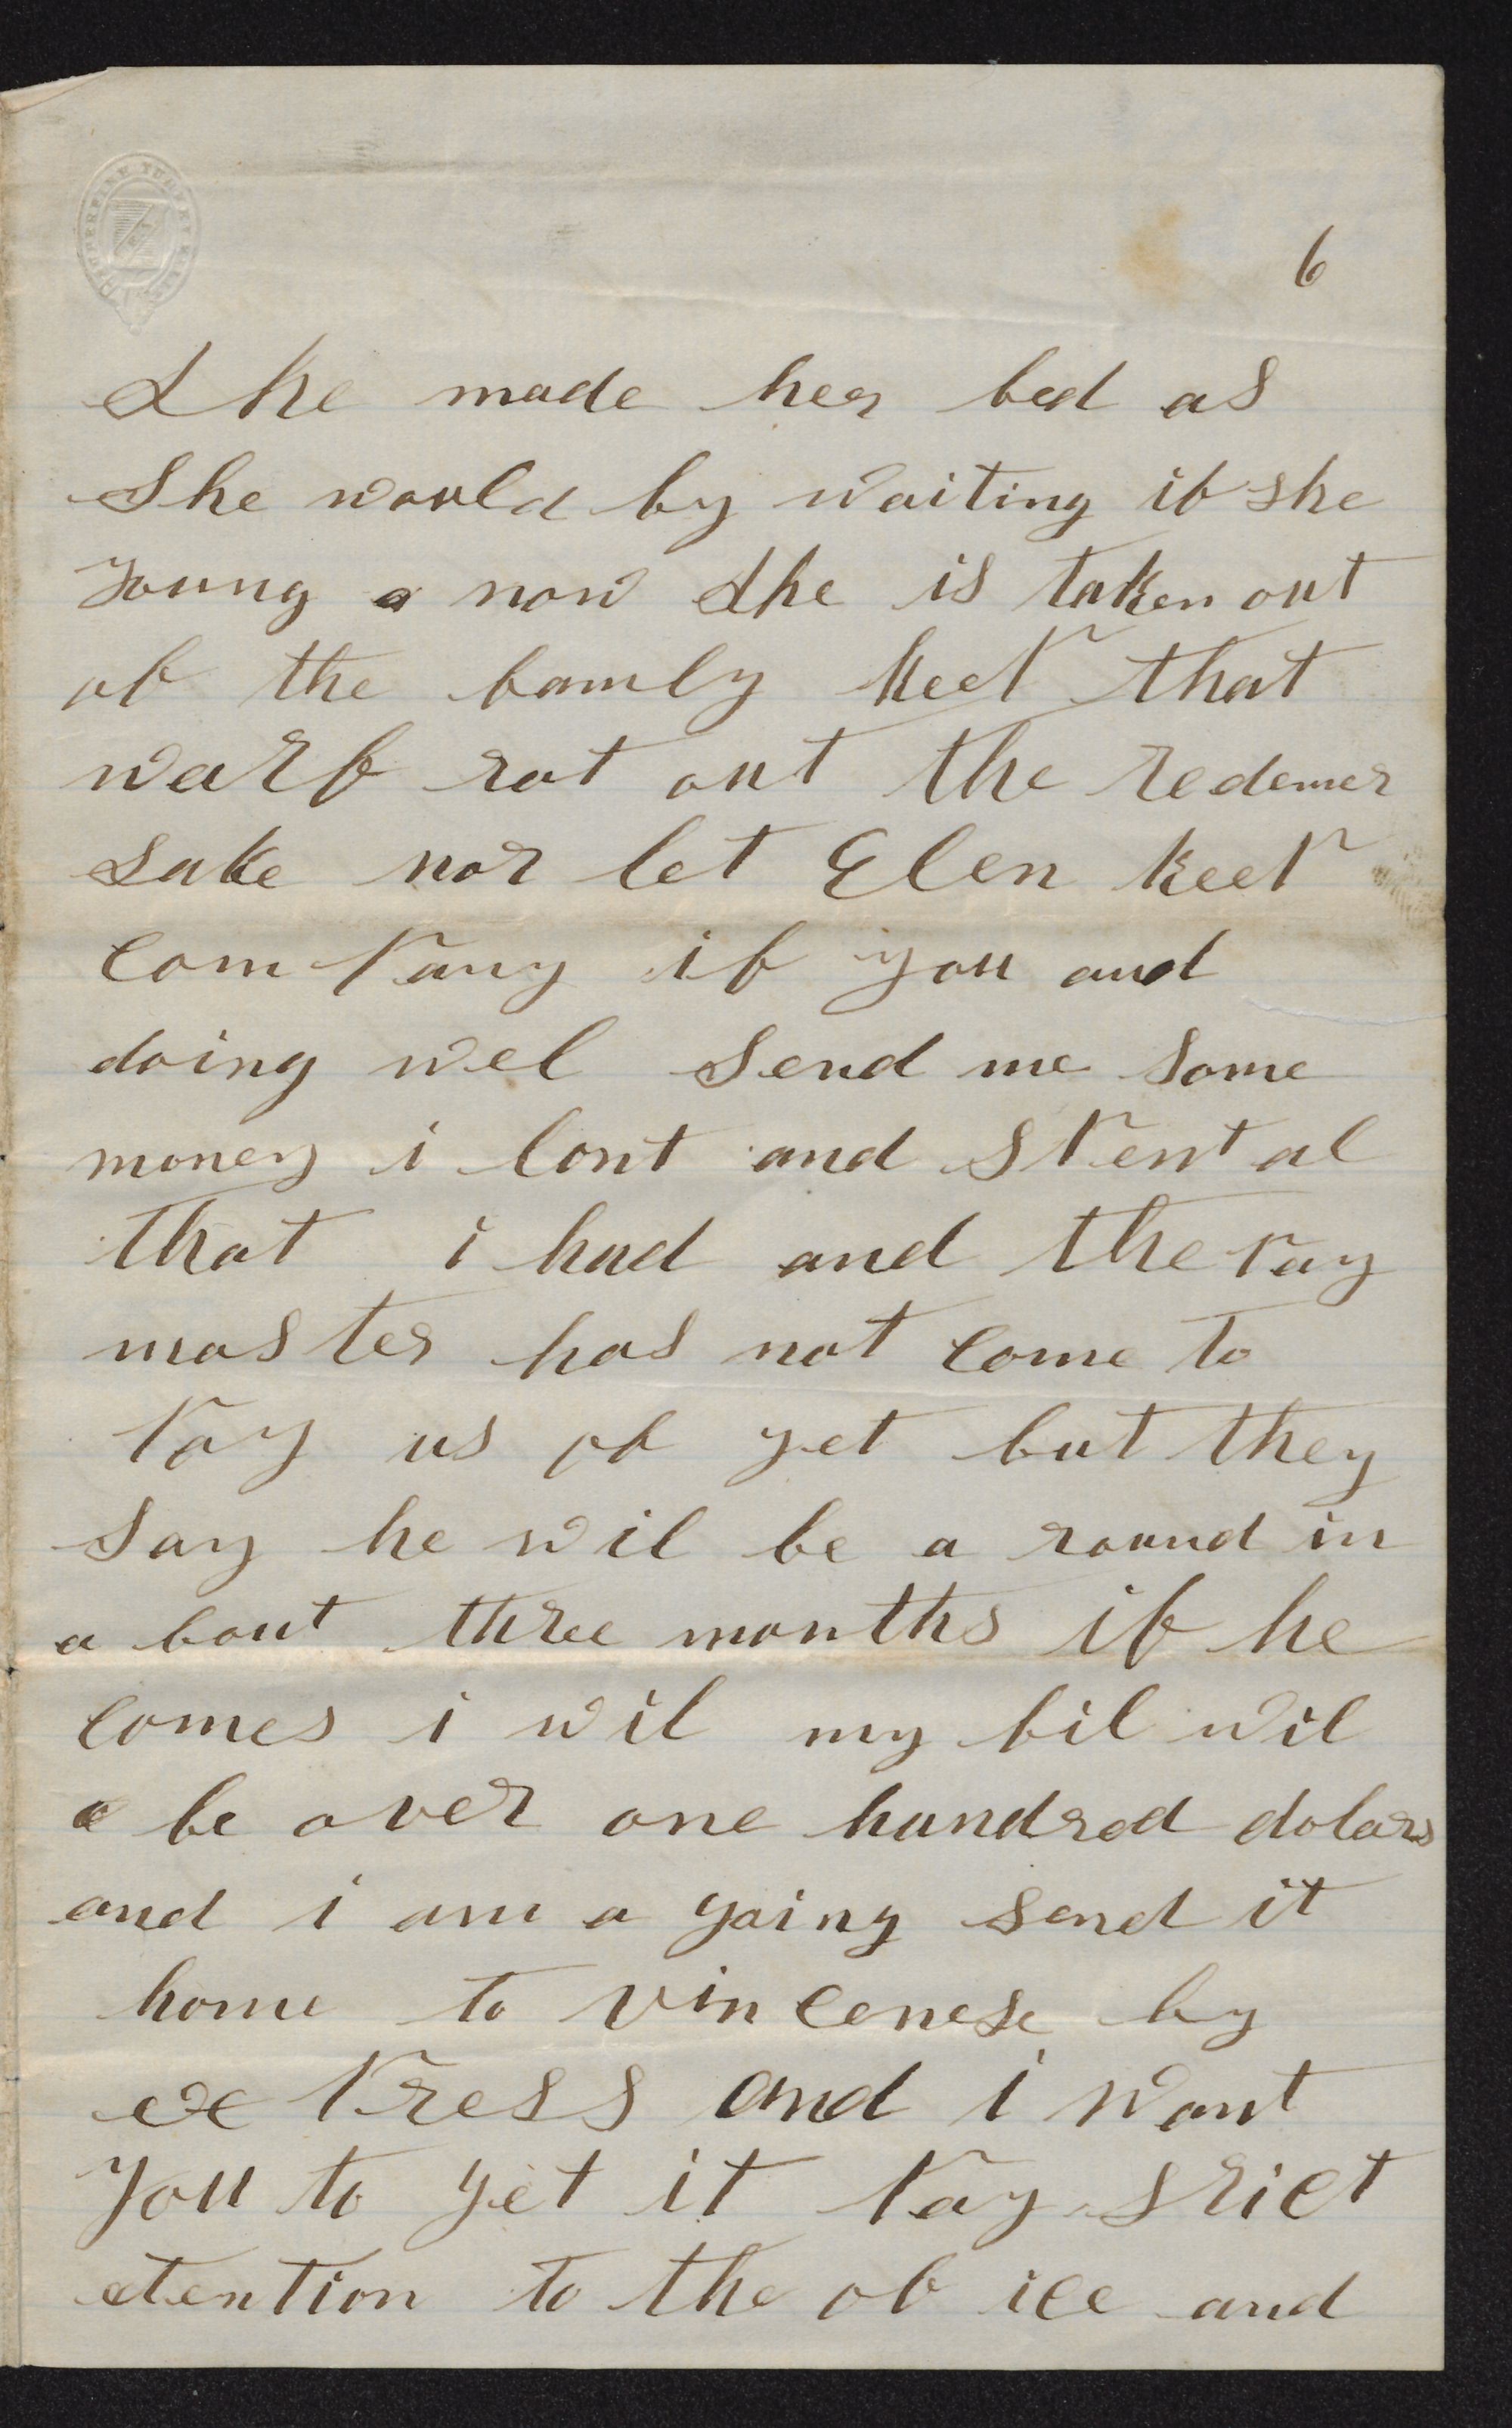 6
She made her bed as
She would by waiting if she
young a now She is taken out
of the famly keep that
warf rat out the redemer
Sake nor let Elen keep
Com pany if you and
doing wel Send me Some
money i lont and Spent al
that i had and the pay
mas ter has not Come to
pay us of yet but they
Say he wil be a round in
a bout three months if he
Comes i wil my bil wil
be over one hundred dolars
and i am a going send it
home to vin Cenese by
ex press and i want
you to get it pay srict
atention to the of ice and